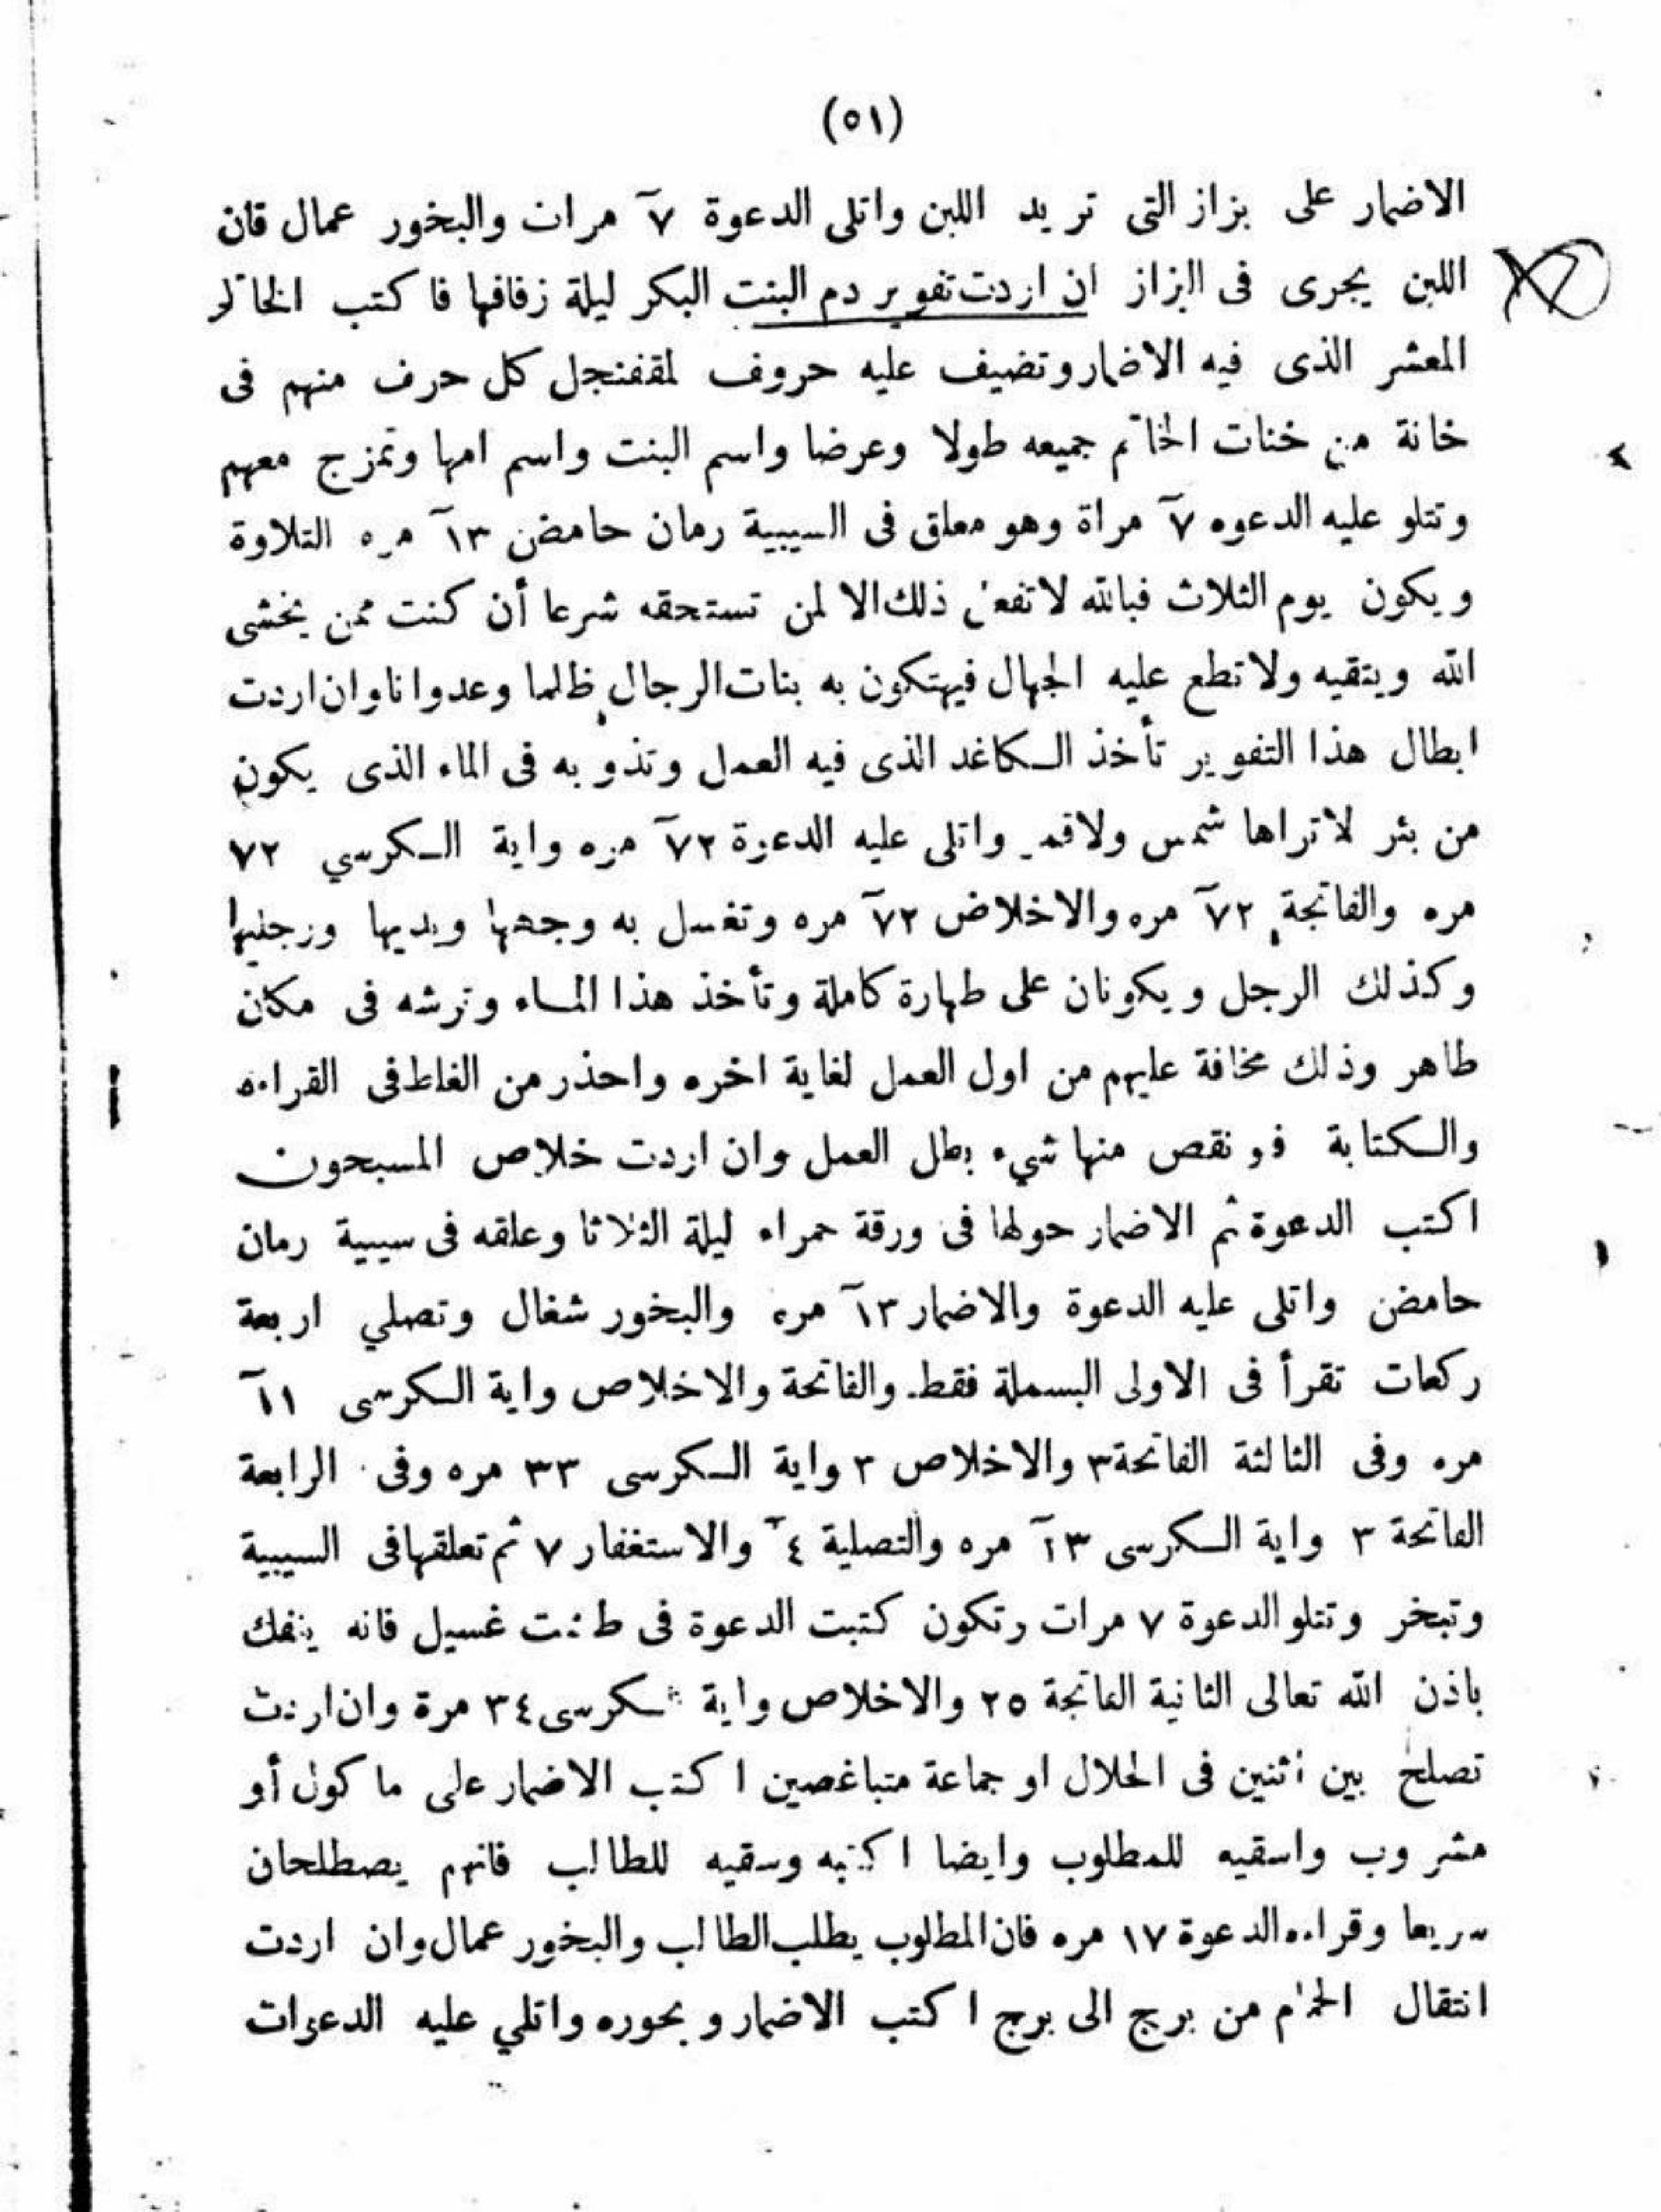 (٥١)
الاضمار على بزاز التى تريد اللبن واتلى الدعوة ٧ مرات والبخور عمال فان
اللبن يجرى فى البزاز ان اردت تفوير دم البنت البكر ليلة زفافها فاكتب الخاتم
المعشر الذى فيه الاضمار وتضيف عليه حروف لمقفنجل كل حرف منهم فى
خانة من خنات الخاتم جميعه طولا وعرضا واسم البنت واسم امها وتمزج معهم
وتتلو عليه الدعوه ٧ مراة وهو معلق فى السيبية رمان حامض ١٣ مره التلاوة
ويكون يوم الثلاث فبالله لا تفعل ذلك الا لمن تستحقه شرعا أن كنت ممن يخشى
الله ويتقيه ولا تطع عليه الجهال فيهتكون به بنات الرجال ظالما وعدوانا وان اردت
ابطال هذا التفوير تأخذ الكاغد الذى فيه العمل وتذوبه فى الماء الذى يكون
من بئر لا تراها شمس ولا قمر واتلى عليه الدعوة ٧٢ مره واية الكرسي ٧٢
مره والفاتحة ٧٢ مره والاخلاص ٧٢ مره وتغسل به وجهها ويديها ورجليها
وكذلك الرجل ويكونان على طهارة كاملة وتأخذ هذا الماء وترشه فى مكان
طاهر وذلك مخافة عليهم من اول العمل لغاية اخره واحذر من الغلط فى القراءه
والكتابة فو نقص منها شيء بطل العمل وان اردت خلاص المسبحون
اكتب الدعوة ثم الاضمار حولها فى ورقة حمراء ليلة الثلاثا وعلقه فى سيبية رمان
حامض واتلى عليه الدعوة والاضمار ١٣ مره والبخور شغال وتصلي اربعة
ركعات تقرأ فى الاولى البسملة فقط والفاتحة والاخلاص واية الكرسى ١١
مره وفى الثالثة الفاتحة ٣ والاخلاص ٣ واية الكرسى ٣٣ مره وفى الرابعة
الفاتحة ٣ واية الكرسى ١٣ مره والتصلية ٤ والاستغفار ٧ ثم تعلقها فى السيبية
وتبخر وتتلو الدعوة ٧ مرات وتكون كتبت الدعوة فى طشت غسيل فانه ينفك
باذن الله تعالى الثانية الفاتحة ٢٥ والاخلاص واية الكرسى ٣٤ مرة وان اردت
تصلح بين اثنين فى الحلال او جماعة متباغصين اكتب الاضمار على ماكول أو
مشروب واسقيه للمطلوب وايضا اكتبه وسقيه للطالب فانهم يصطلحان
سريعا وقراءه الدعوة ١٧ مره فان المطلوب يطلب الطالب والبخور عمال وان اردت
انتقال الحمام من برج الى برج اكتب الاضمار وبحوره واتلي عليه الدعوات